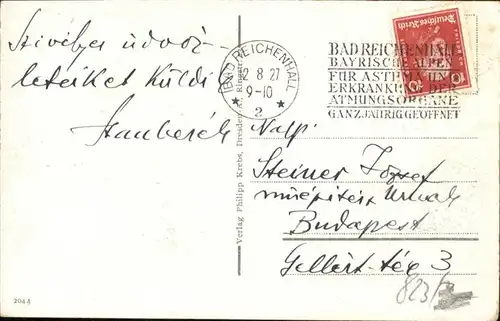 Szívélyes üdvöz-
leteiket küldik
BAD REICHENHALL
12 8 27
9-10
2
BAD REICHENHALL
BAYRISCHE ALPEN
FÜR ASTHMA UND
ERKRANKUNG DER
ATMUNGSORGANE
GANZJÄHRIG GEÖFFNET
Deutsches Reich
10
Verlag Philipp Krebs, Dresden-A., Ringstr.
Nagys.
Steiner József
műépítész Úrnak
Budapest
Gellért-tér 3
823/
2044